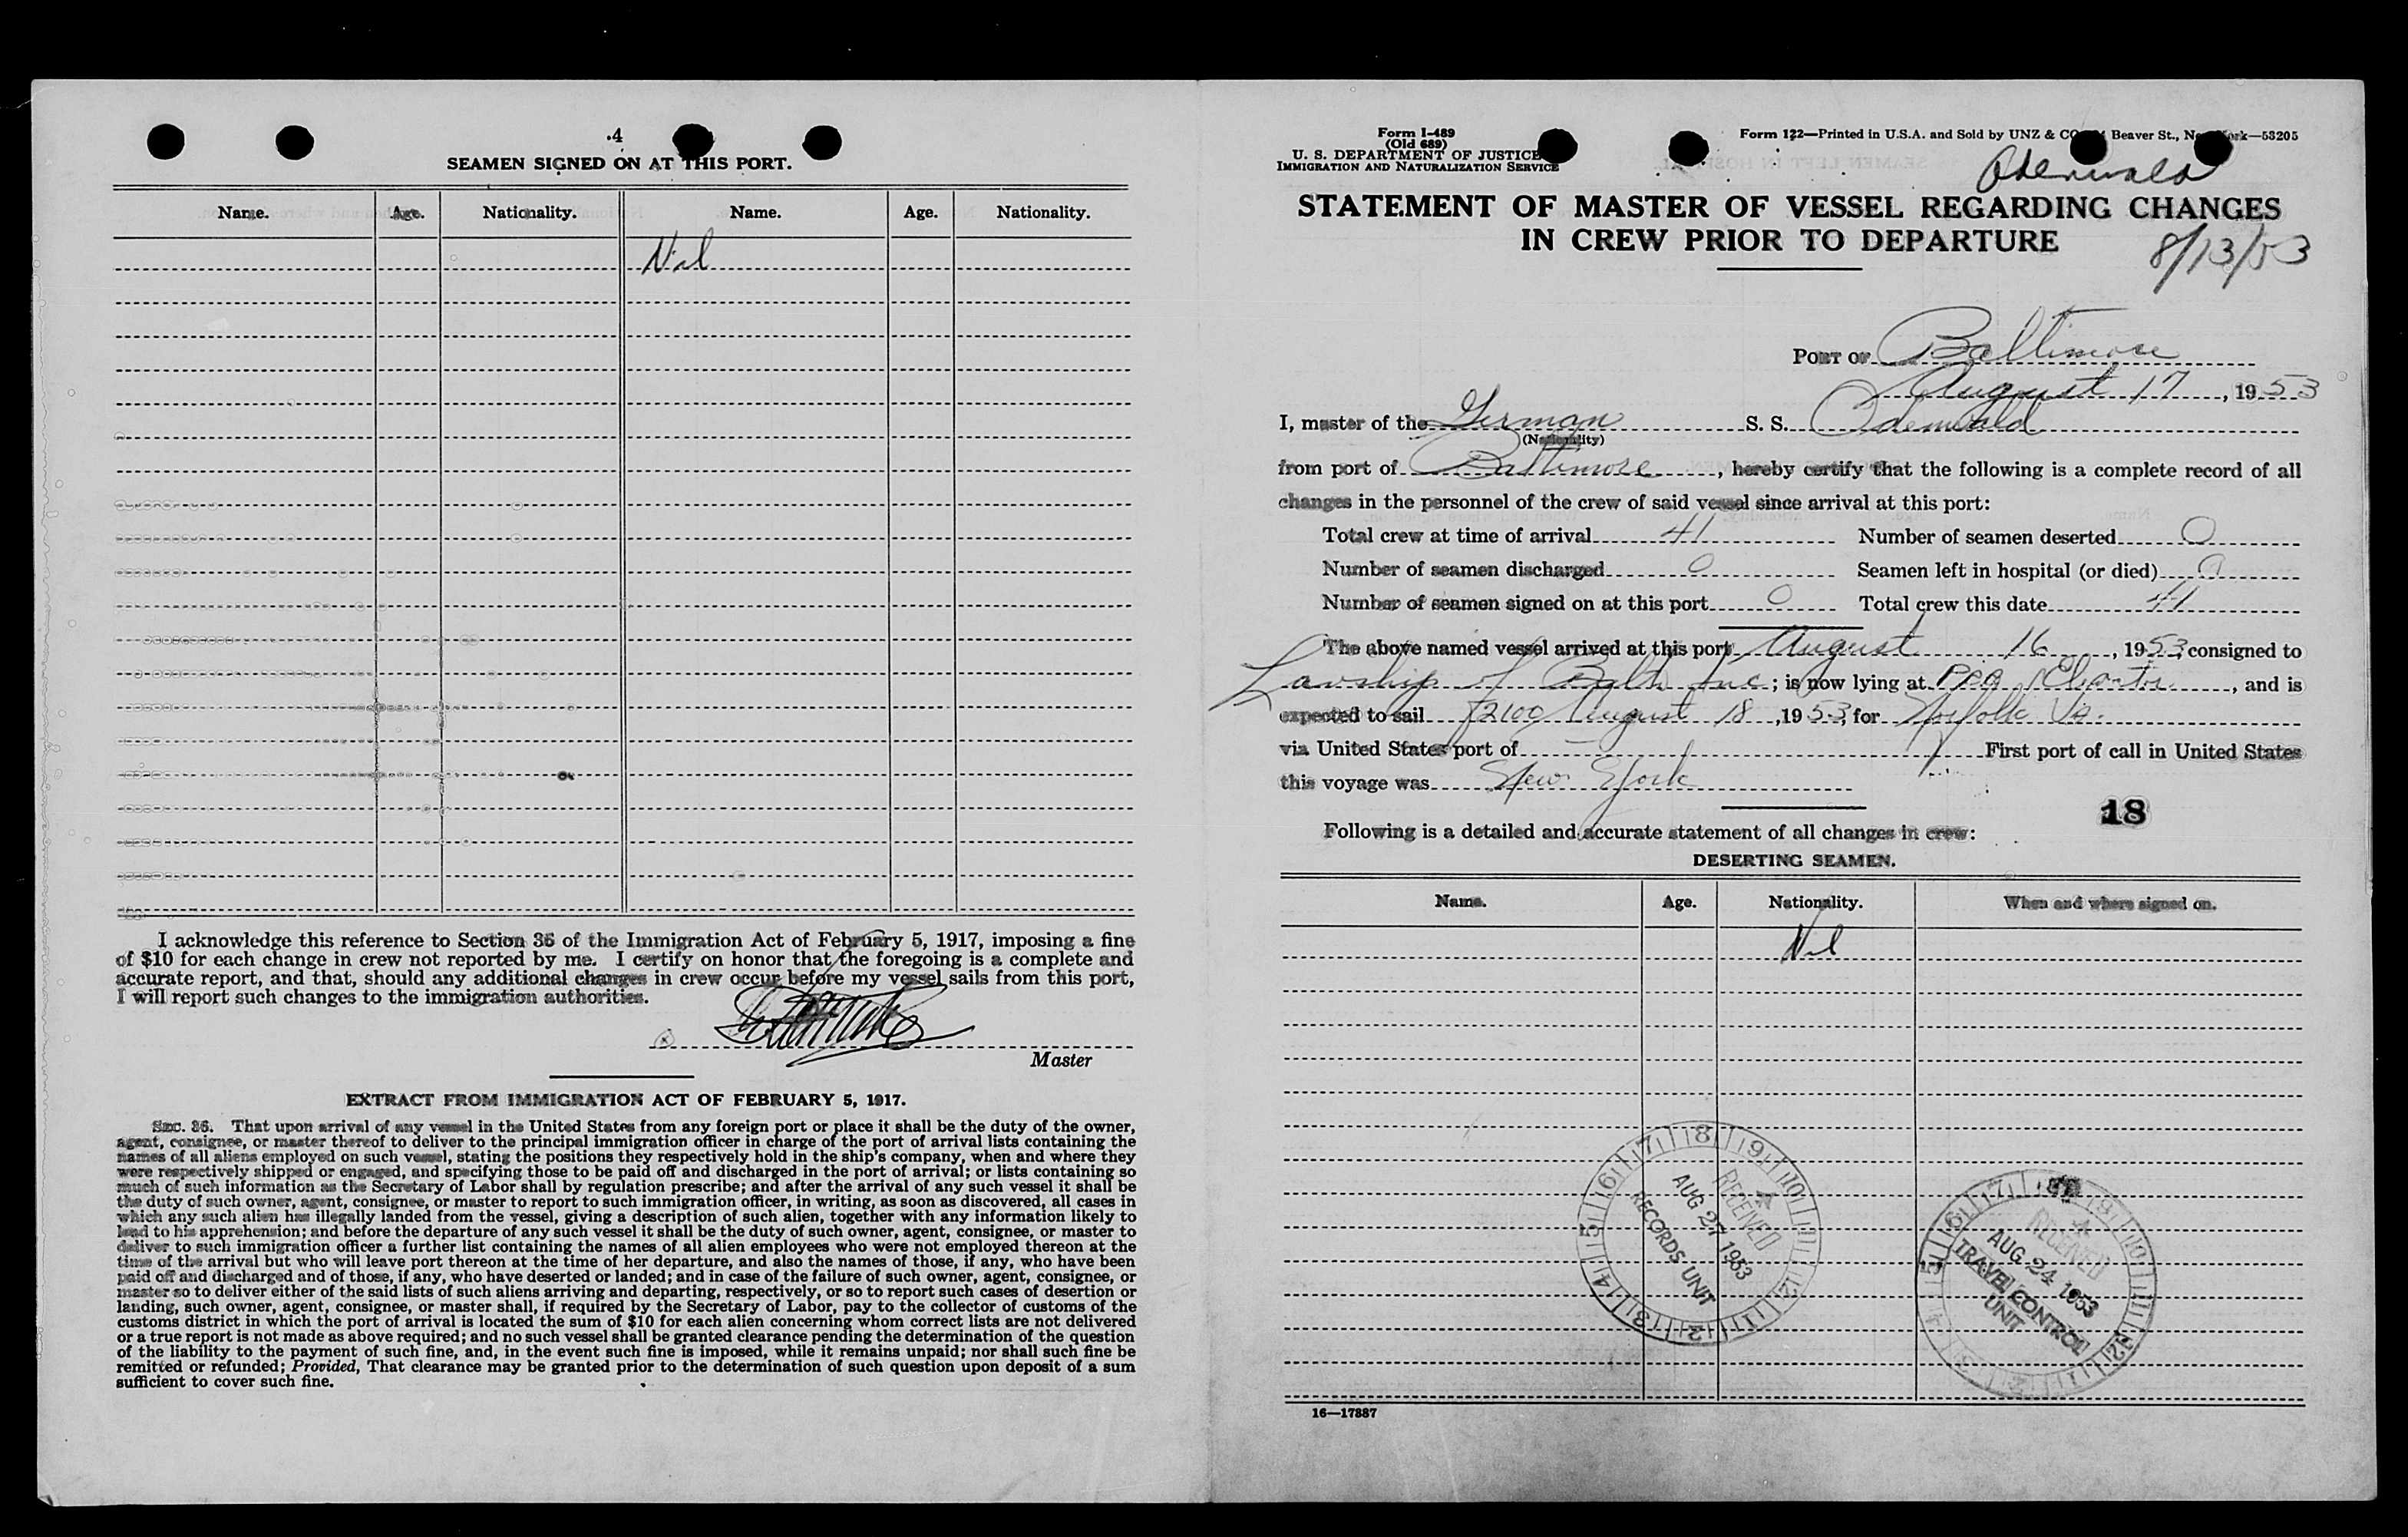 4
SEAMEN SIGNED ON AT THIS PORT.
Name. Age. Nationality. Name. Age. Nationality.
Nil
I acknowledge this reference to Section 36 of the Immigration Act of February 5, 1917, imposing a fine
of $10 for each change in crew not reported by me. I certify on honor that the foregoing is a complete and
accurate report, and that, should any additional changes in crew occur before my vessel sails from this port,
I will report such changes to the immigration authorities.
Master
EXTRACT FROM IMMIGRATION ACT OF FEBRUARY 5, 1917.
SEC. 36. That upon arrival of any vessel in the United States from any foreign port or place it shall be the duty of the owner,
agent, consignee, or master thereof to deliver to the principal immigration officer in charge of the port of arrival lists containing the
names of all aliens employed on such vessel, stating the positions they respectively hold in the ship's company, when and where they
were respectively shipped or engaged, and specifying those to be paid off and discharged in the port of arrival; or lists containing so
much of such information as the Secretary of Labor shall by regulation prescribe; and after the arrival of any such vessel it shall be
the duty of such owner, agent, consignee, or master to report to such immigration officer, in writing, as soon as discovered, all cases in
which any such alien has illegally landed from the vessel, giving a description of such alien, together with any information likely to
lead to his apprehension; and before the departure of any such vessel it shall be the duty of such owner, agent, consignee, or master to
deliver to such immigration officer a further list containing the names of all alien employees who were not employed thereon at the
time of the arrival but who will leave port thereon at the time of her departure, and also the names of those, if any, who have been
paid off and discharged and of those, if any, who have deserted or landed; and in case of the failure of such owner, agent, consignee, or
master so to deliver either of the said lists of such aliens arriving and departing, respectively, or so to report such cases of desertion or
landing, such owner, agent, consignee, or master shall, if required by the Secretary of Labor, pay to the collector of customs of the
customs district in which the port of arrival is located the sum of $10 for each alien concerning whom correct lists are not delivered
or a true report is not made as above required; and no such vessel shall be granted clearance pending the determination of the question
of the liability to the payment of such fine, and, in the event such fine is imposed, while it remains unpaid; nor shall such fine be
remitted or refunded; Provided, That clearance may be granted prior to the determination of such question upon deposit of a sum
sufficient to cover such fine.
Form I-489
(Old 689)
U. S. DEPARTMENT OF JUSTICE
IMMIGRATION AND NATURALIZATION SERVICE
Form 122—Printed in U.S.A. and Sold by UNZ & CO Beaver St., New York—53205
Odenwald
STATEMENT OF MASTER OF VESSEL REGARDING CHANGES
IN CREW PRIOR TO DEPARTURE
8/13/53
PORT OF Baltimore
August 17, 1953
I, master of the German S. S. Odenwald
(Nationality)
from port of Baltimore, hereby certify that the following is a complete record of all
changes in the personnel of the crew of said vessel since arrival at this port:
Total crew at time of arrival 41 Number of seamen deserted 0
Number of seamen discharged 0 Seamen left in hospital (or died) 0
Number of seamen signed on at this port 0 Total crew this date 41
The above named vessel arrived at this port August 16, 1953, consigned to
of Balto Inc; is now lying at, and is
expected to sail 2100 August 18, 1953, for Norfolk Va.
via United States port of — First port of call in United States
this voyage was New York
18
Following is a detailed and accurate statement of all changes in crew:
DESERTING SEAMEN.
Name. Age. Nationality. When and where signed on.
Nil
RECEIVED
AUG 27 1953
RECORDS UNIT
RECEIVED
AUG 24 1953
TRAVEL CONTROL
UNIT
16—17887